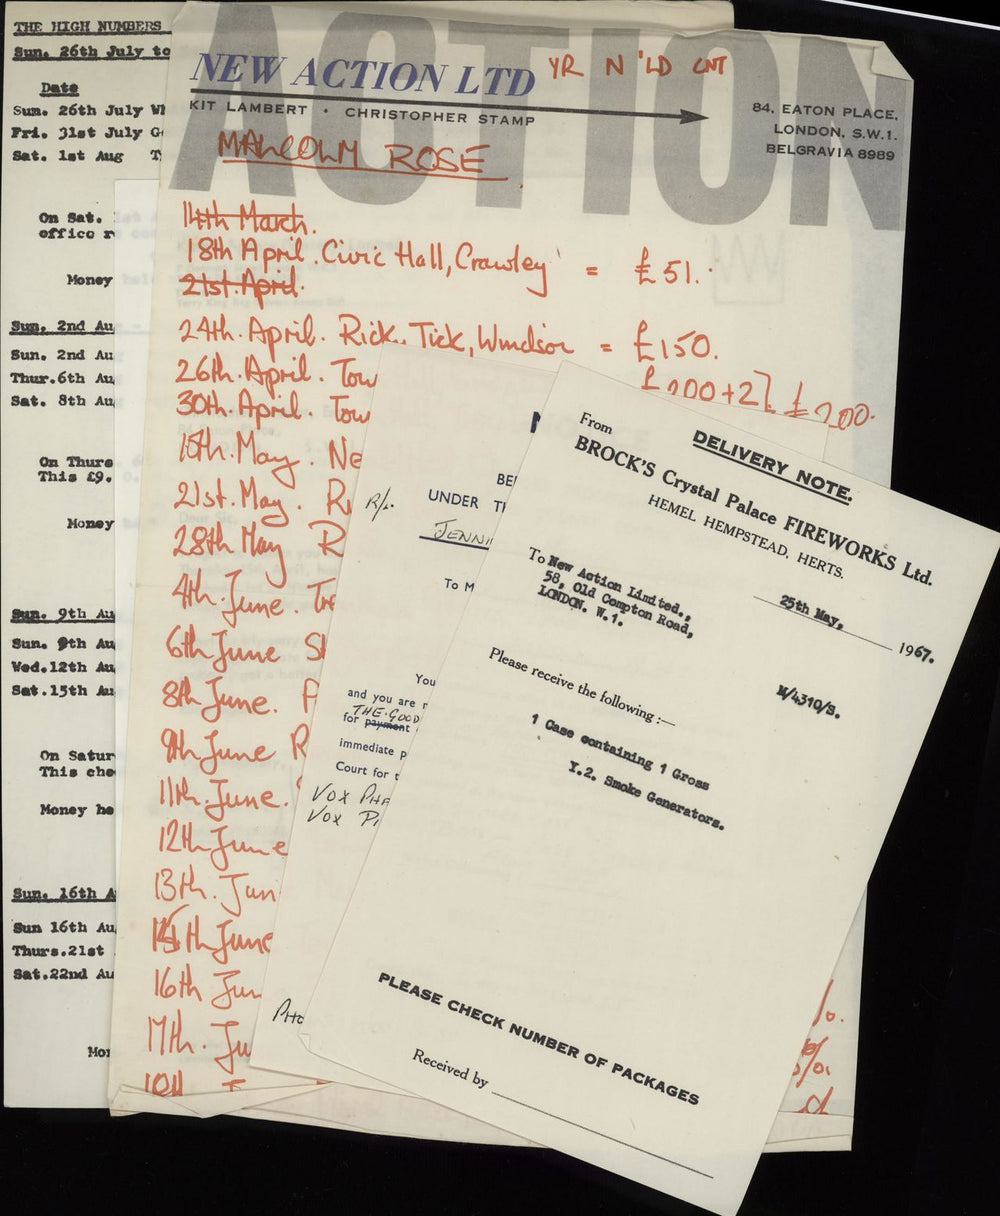 THE HIGH NUMBERS
Sun. 26th July to
Date
Sun. 26th July
Fri. 31st July
Sat. 1st Aug
On Sat.
office
Money
Sun. 2nd Au
Sun. 2nd Au
Thur.6th Au
Sat. 8th Au
On Thurs
This £9.
Money
Sun. 9th Au
Sun. 9th Au
Wed.12th Au
Sat.15th Au
On Satur
This che
Money he
Sun. 16th A
Sun 16th Au
Thurs.21st
Sat.22nd Au
Mo
ACTION
NEW ACTION LTD
YR N 'LD CNT
KIT LAMBERT · CHRISTOPHER STAMP
84, EATON PLACE,
LONDON, S.W.1.
BELGRAVIA 8989
MALCOLM ROSE
14th March.
18th April. Civic Hall, Crawley = £51.
21st April.
24th. April. Rick. Tick, Windsor = £150.
26th. April. Tow
30th. April. Tow
15th. May. Ne
21st. May. R
28th May R
4th. June. Tre
6th June S
8th June. P
9th June R
11th. June.
12th June
13th. Jun
15th June
16th Jun
17th. Ju
BE
UNDER T
R/.
JENNI
To M
You
and you are
THE GOOD
for payment
immediate p
Court for t
VOX PHA
VOX P
PHO
DELIVERY NOTE.
From
BROCK'S Crystal Palace FIREWORKS Ltd.
HEMEL HEMPSTEAD, HERTS.
To New Action Limited.,
58, Old Compton Road,
LONDON. W.1.
25th May, 1967.
W/4310/S.
Please receive the following :—
1 Case containing 1 Gross
Y.2. Smoke Generators.
PLEASE CHECK NUMBER OF PACKAGES
Received by